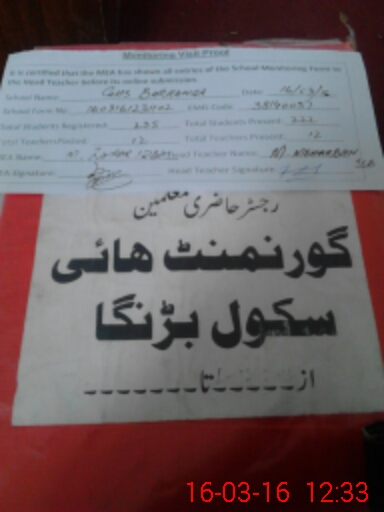 Monitoring Visit Proof
It is certified that the MEA has shown all entries of the School Monitoring Form to
the Head Teacher before its online submission.
School Name: GHS BARRANGA Date: 16/03/16
School Form No EMIS Code:
Total Students Registered: 235 Total Students Present: 222
Total Teachers Posted: 12 Total Teachers Present: 12
MEA Name: Head Teacher Name: M.
MEA Signature: Head Teacher Signature:
رجسٹر حاضری معلمین
گورنمنٹ ھائی
سکول بڑنگا
از تا
16-03-16 12:33